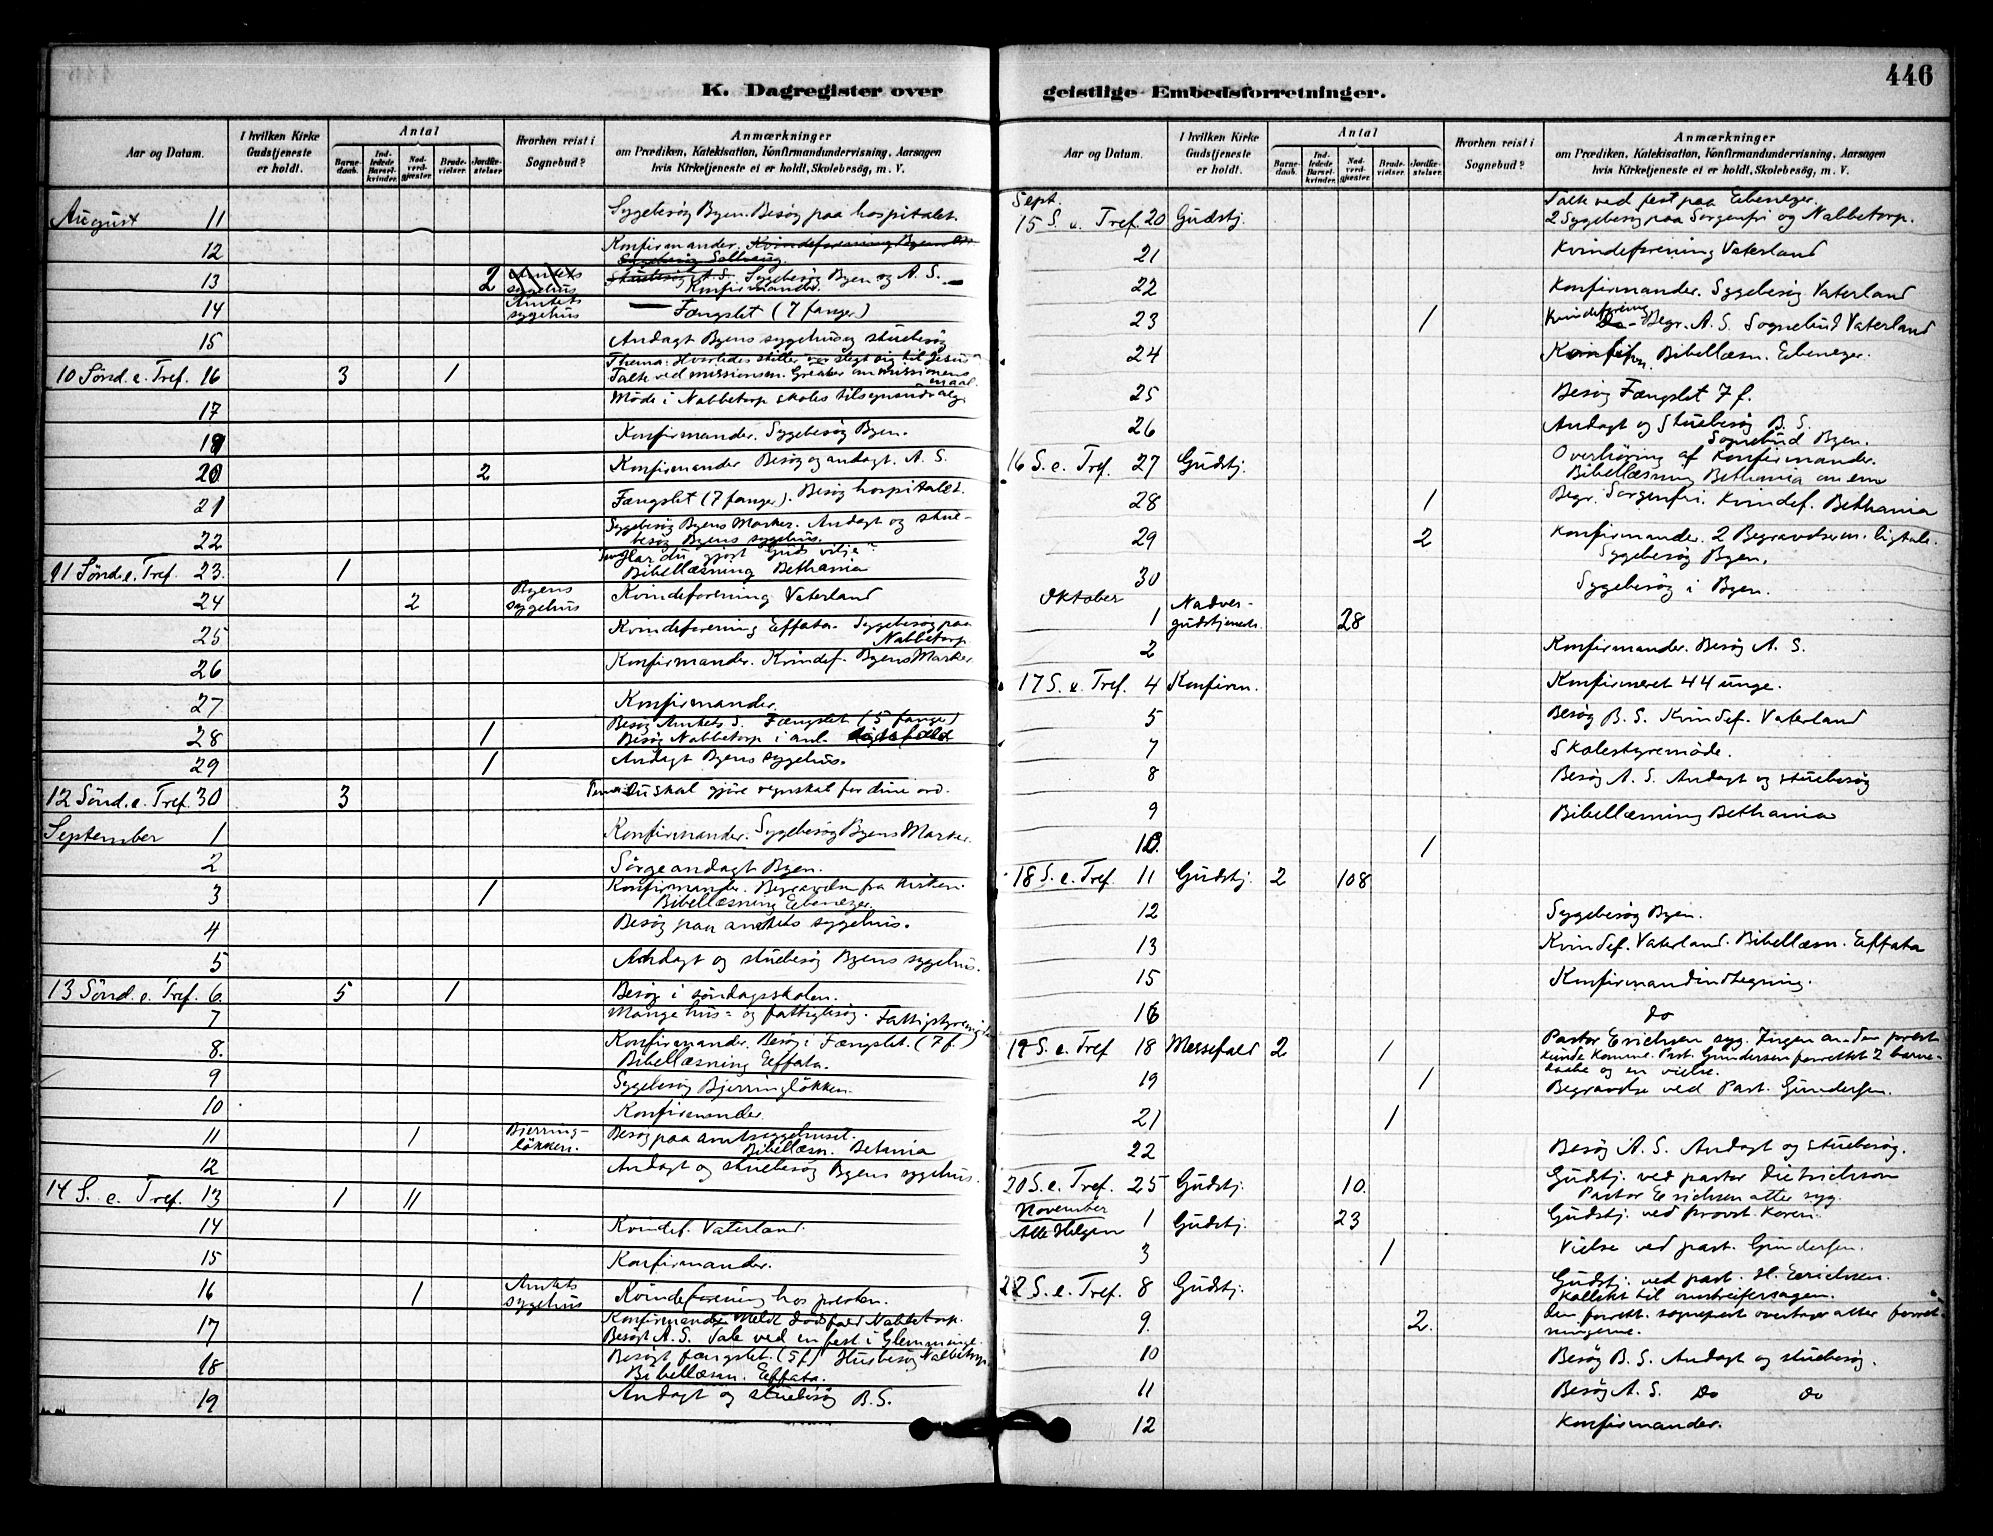 446
K. Dagregister over geistlige Embedsforretninger.
Aar og Datum.
I hvilken Kirke Gudstjeneste er holdt.
Antal
Barnedaab.
Indledede Barselkvinder.
Nadverdgjæster.
Brudevielser.
Jordfæstelser.
Hvorhen reist i Sognebud?
Anmærkninger
om Prædiken, Katekisation, Konfirmandundervisning, Aarsagen
hvis Kirketjeneste ei er holdt, Skolebesøg, m. V.
August 11 Sygebesøg Byen. Besøg paa hospitalet.
12 Konfirmander. Kvindeforening Byens
13 2 Amtets sygehus Stuebesøg A.S. Sygebesøg Byen og A. S.
Konfirmander.
14 Amtets sygehus Fængslet (7 fanger)
15 Andagt Byens sygehus og stuebesøg
10 Sønd. e. Tref. 16 3 1 Thema: Hvorledes stiller vor slegt sig til Jesus
Talte ved missionsm.
17 Møde i Nabbetorp skoles tilsynsudvalg.
18 Konfirmander. Sygebesøg Byen.
20 2 Konfirmander Besøg og andagt. A. S.
21 Fængslet (7 fanger). Besøg hospitalet.
22 Sygebesøg Byens Marker. Andagt og stuebesøg Byens sygehus.
11 Sønd. e. Tref. 23. 1 Har du gjort Guds vilje?
Bibellæsning Bethania
24 2 Byens sygehus Kvindeforening Vaterland
25 Kvindeforening Effata. Sygebesøg paa Nabbetorp.
26 Konfirmander. Kvindef. Byens Marker
27 Konfirmander.
28 1 Besøg Amtets S. Fængslet (5 fange)
Besøg Nabbetorp i anl. dødsfald
29 1 Andagt Byens sygehus.
12 Sønd. e. Tref. 30 3 Du skal gjøre regnskab for dine ord.
September 1 Konfirmander. Sygebesøg Byens Marker.
2 Sørgeandagt Byen.
3 1 Konfirmander. Begravelse fra kirken.
Bibellæsning Ebenezer.
4 Besøg paa amtets sygehus.
5 Andagt og stuebesøg Byens sygehus.
13 Sønd. e. Tref. 6. 5 1 Besøg i søndagsskolen.
7 Mange hus- og fattigbesøg. Fattigstyremøde
8. Konfirmander. Besøg i Fængslet. (7 f.)
Bibellæsning Effata.
9 Sygebesøg Bjerringløkken.
10 Konfirmander.
11 1 Bjerringløkken. Besøg paa amtssygehuset.
Bibellæsn. Betania
12 Andagt og stuebesøg Byens sygehus.
14 S. e. Tref. 13 1 11
14 Kvindef. Vaterland.
15 Konfirmander.
16 1 Amtets sygehus Kvindeforening hos presten.
17 Konfirmander Meldt dødsfald Nabbetorp.
Besøgt A. S. Tale ved en fest i Glemminge.
18 Besøgt fængslet. (5 f) Husbesøg Nabbetorp
Bibellæsn. Effata.
19 Andagt og stuebesøg B. S.
Sept.
15 S. e. Tref. 20 Gudstj. Talte ved fest paa Ebenezer.
2 Sygebesøg paa Sorgenfri og Nabbetorp.
21 Kvindeforening Vaterland
22 Konfirmander. Sygebesøg Vaterland
23 1 Kvindeforening Do - Begr. A. S. Sognebud Vaterland
24 Konfirm. Bibellæsn. Ebenezer.
25 Besøg Fængslet 7 f.
26 Andagt og stuebesøg B. S.
Sognebud Byen.
16 S. e. Tref. 27 Gudstj. Overhøring af Konfirmander.
Bibellæsning Bethania
28 1 Begr. Sorgenfri. Kvindef. Bethania
29 2 Konfirmander. 2 Begravelser m. ligtale.
Sygebesøg Byen.
30 Sygebesøg i Byen.
Oktober
1 Nadvergudstjeneste 28
2 Konfirmander. Besøg A. S.
17 S. e. Tref. 4 Konfirm. Konfirmeret 44 unge.
5 Besøg B. S. Kvindef. Vaterland
7 Skolestyremøde.
8 Besøg A. S. Andagt og stuebesøg
9 Bibellæsning Bethania
10. 1
18 S. e. Tref. 11 Gudstj. 2 108
12 Sygebesøg Byen.
13 Kvindef. Vaterland. Bibellæsn. Effata
15 Konfirmandindtegning.
16 do
19 S. e. Tref 18 Messefald 2 1 Pastor Erichsen syg. Ingen anden prest
kunde komme. Past. Gundersen forrettet 2 barnedaabe og en vielse.
19 1 Begravelse ved Past. Gundersen.
21 1
22 Besøg A. S. Andagt og stuebesøg.
20 S. e. Tref. 25 Gudstj. 10. Gudstj. ved pastor Dietrichson
Pastor Erichsen atter syg.
November
Alle Helgen 1 Gudstj. 23 Gudstj. ved provst Koren.
3 1 Vielse ved past. Gundersen.
22 S. e. Tref. 8 Gudstj. Gudstj. ved past. H. Erichsen.
Kollekt til omstreifersagen.
9. 2. Den forrett. sogneprest overtager atter forretningerne.
10 Besøg B. S. Andagt og stuebesøg.
11 Besøg A. S. Do Do
12 Konfirmander.